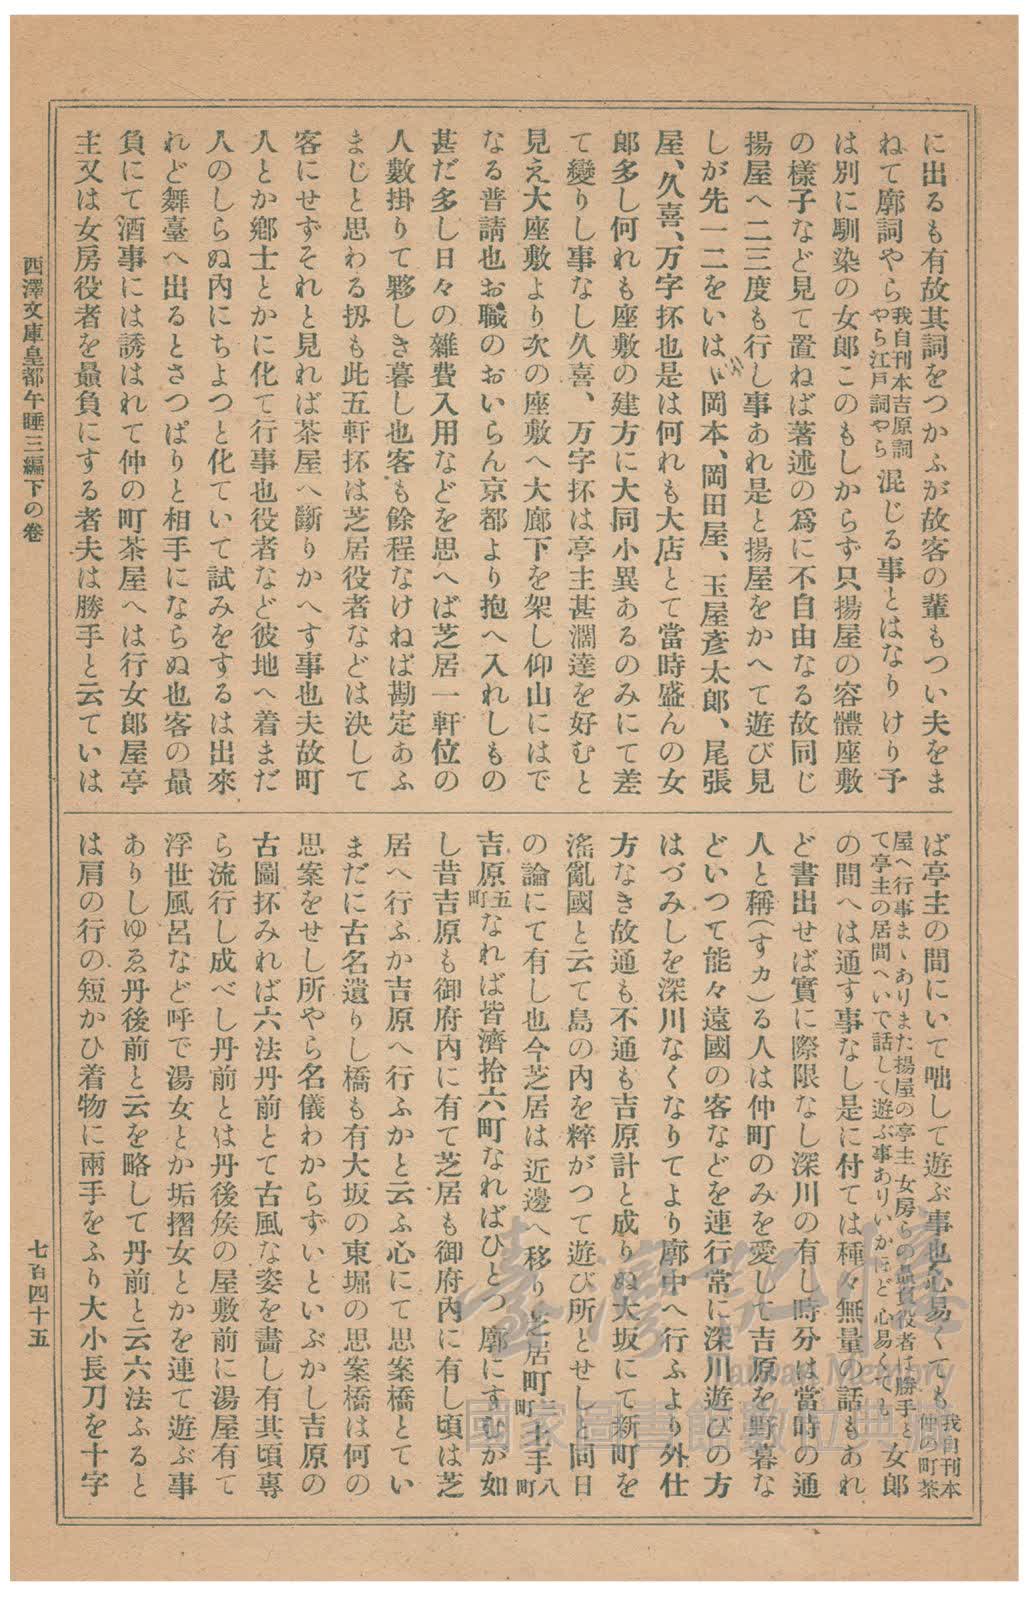 に出るも有故其詞をつかふが故客の輩もつい夫をま
ねて廓詞やら我自刊本吉原詞やら江戸詞やら混じる事とはなりけり予
は別に馴染の女郎このもしからず只揚屋の容體座敷
の樣子など見て置ねば著述の爲に不自由なる故同じ
揚屋へ二三度も行し事あれ是と揚屋をかへて遊び見
しが先一二をいはゞ岡本、岡田屋、玉屋彥太郎、尾張
屋、久喜、万字抔也是は何れも大店とて當時盛んの女
郎多し何れも座敷の建方に大同小異あるのみにて差
て變りし事なし久喜、万字抔は亭主甚濶達を好むと
見え大座敷より次の座敷へ大廊下を架し仰山にはで
なる普請也お職のおいらん京都より抱へ入れしもの
甚だ多し日々の雜費入用などを思へば芝居一軒位の
人數掛りて夥しき暮し也客も餘程なけねば勘定あふ
まじと思わる扨も此五軒抔は芝居役者などは決して
客にせずそれと見れば茶屋へ斷りかへす事也夫故町
人とか鄕士とかに化て行事也役者など彼地へ着まだ
人のしらぬ內にちよつと化ていて試みをするは出來
れど舞臺へ出るとさつぱりと相手にならぬ也客の贔
負にて酒事には誘はれて仲の町茶屋へは行女郎屋亭
主又は女房役者を贔負にする者夫は勝手と云ていは
ば亭主の間にいて咄して遊ぶ事也心易くても我自刊本仲の町茶
屋へ行事まゝありまた揚屋の亭主女房らの贔負役者は勝手とて亭主の居間へいで話して遊ぶ事ありいかほど心易くても女郎
の間へは通す事なし是に付ては種々無量の話もあれ
ど書出せば實に際限なし深川の有し時分は當時の通
人と稱(すカ)る人は仲町のみを愛して吉原を野暮な
どいつて能々遠國の客などを連行常に深川遊びの方
はづみしを深川なくなりてより廓中へ行ふより外仕
方なき故通も不通も吉原計と成りぬ大坂にて新町を
滛亂國と云て島の內を粹がつて遊び所とせしと同日
の論にて有し也今芝居は近邊へ移り芝居町二七手八町町
吉原五町なれば皆濟拾六町なればひとつ廓にすむが如
し昔吉原も御府內に有て芝居も御府內に有し頃は芝
居へ行ふか吉原へ行ふかと云ふ心にて思案橋とてい
まだに古名遺りし橋も有大坂の東堀の思案橋は何の
思案をせし所やら名儀わからずいといぶかし吉原の
古圖抔みれば六法丹前とて古風な姿を畫し有其頃專
ら流行し成べし丹前とは丹後矦の屋敷前に湯屋有て
浮世風呂など呼で湯女とか垢摺女とかを連て遊ぶ事
ありしゆゑ丹後前と云を略して丹前と云六法ふると
は肩の行の短かひ着物に兩手をふり大小長刀を十字
西澤文庫皇都午睡三編下の卷
七百四十五
臺灣記憶
Taiwan Memory
國家圖書館數位典藏